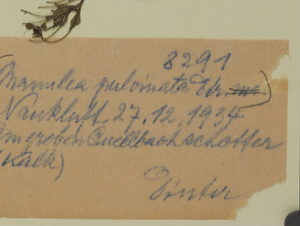 8291
(Manulea pulvinata Dtr.
Naukluft 27.12.1934
Im groben Quellbachschotter
(Kalk)
Dinter